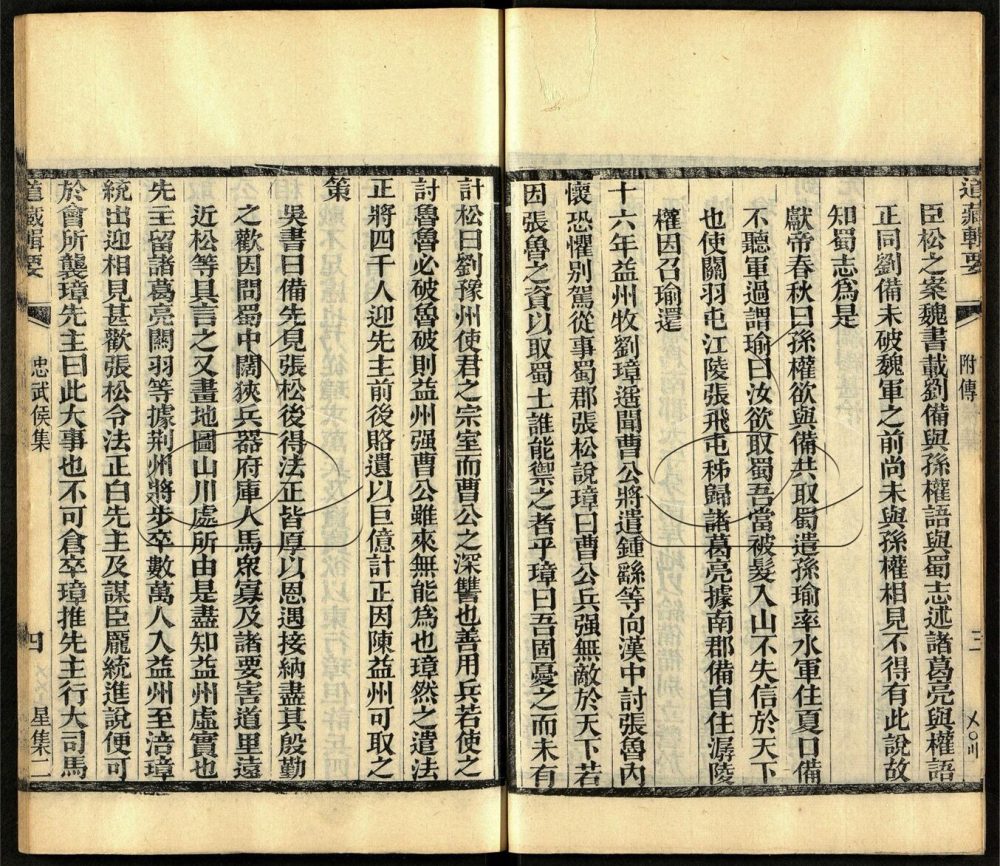 道藏輯要
附傳
三
〤〇〣
臣松之案魏書載劉備與孫權語與蜀志述諸葛亮與權語
正同劉備未破魏軍之前尚未與孫權相見不得有此說故
知蜀志爲是
獻帝春秋曰孫權欲與備共取蜀遣孫瑜率水軍住夏口備
不聽軍過謂瑜曰汝欲取蜀吾當被髮入山不失信於天下
也使關羽屯江陵張飛屯秭歸諸葛亮據南郡備自住潺陵
權因召瑜還
十六年益州牧劉璋遥聞曹公將遣鍾繇等向漢中討張魯内
懷恐懼别駕從事蜀郡張松說璋曰曹公兵强無敵於天下若
因張魯之資以取蜀土誰能禦之者乎璋曰吾固憂之而未有
計松曰劉豫州使君之宗室而曹公之深讐也善用兵若使之
討魯魯必破魯破則益州强曹公雖來無能爲也璋然之遣法
正將四千人迎先主前後賂遺以巨億計正因陳益州可取之
策
吳書曰備先見張松後得法正皆厚以恩遇接納盡其殷勤
之歡因問蜀中闊狹兵器府庫人馬衆寡及諸要害道里遠
近松等具言之又畫地圖山川處所由是盡知益州虛實也
先主留諸葛亮關羽等據荆州將步卒數萬人入益州至涪璋
統出迎相見甚歡張松令法正白先主及謀臣龐統進說便可
於會所襲璋先主曰此大事也不可倉卒璋推先主行大司馬
道藏輯要
忠武侯集
四
星集二